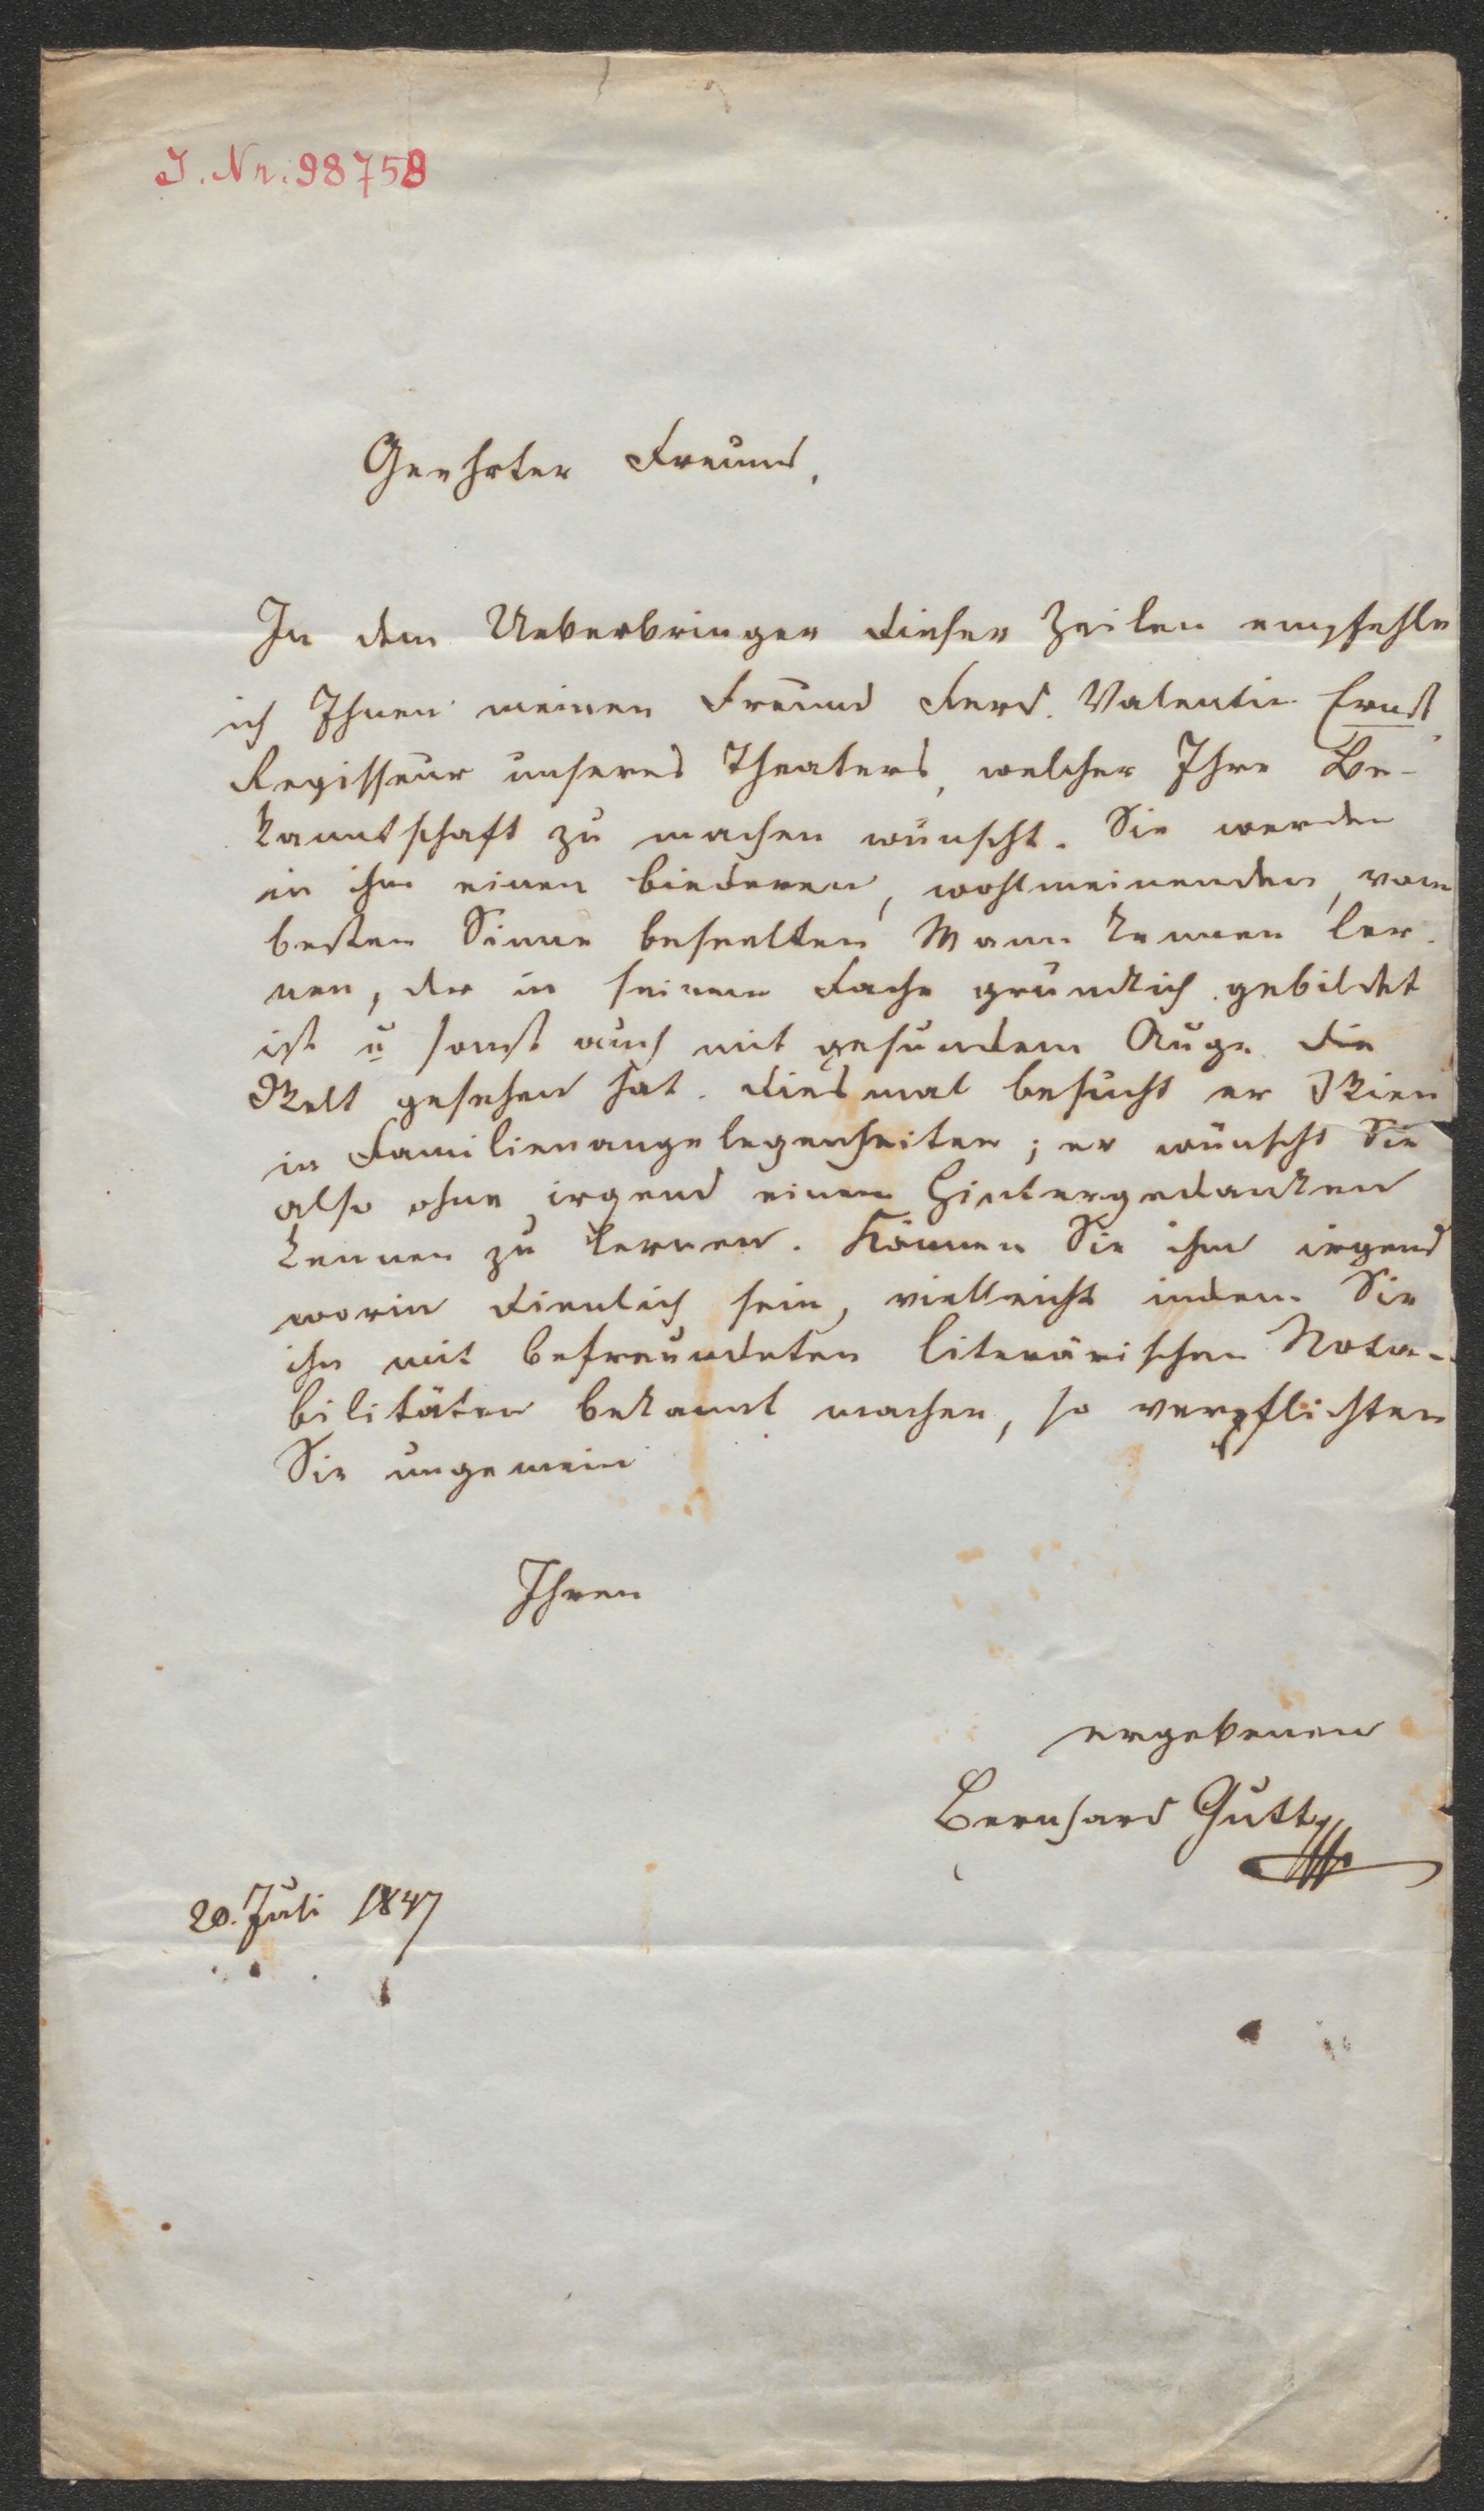 J. Nr. 98758
Geehrter Freund,
In dem Ueberbringer dieser Zeilen empfehle
ich Ihnen meinen Freund Ferd. Valentin Ernst,
Regisseur unseres Theaters, welcher Ihre Be-
kanntschaft zu machen wünscht. Sie werden
in ihm einen biederen, wohlmeinenden, vom
besten Sinne beseelten Mann kennen ler-
nen, der in seinem Fache gründlich gebildet
ist u sonst auch mit gesundem Auge die
Welt gesehen hat. Diesmal besucht er Wien
in Familienangelegenheiten; er wünscht Sie
also ohne irgend einen Hintergedanken
kennen zu lernen. Können Sie ihm irgend
worin dienlich sein, vielleicht indem Sie
ihn mit befreundeten literärischen Nota-
bilitäten bekannt machen, so verpflichten
Sie ungemein
Ihren
ergebenen
Bernhard Gutt
20. Juli 1847